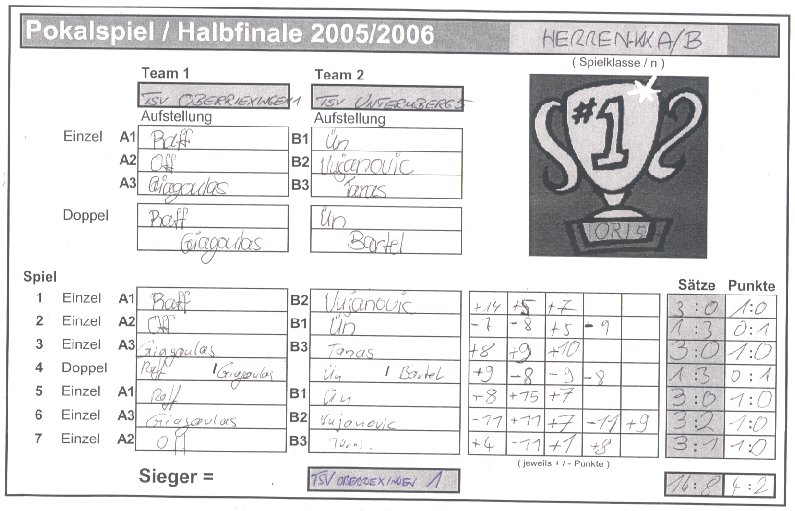 Pokalspiel / Halbfinale 2005/2006 HERREN-KK A/B
( Spielklasse / n )
Team 1 Team 2
TSV OBERRIEXINGEN 1 TSV UNTERMBERG 5
Aufstellung Aufstellung
Einzel A1 Raff B1 Ün
A2 Off B2 Vujanovic
A3 Giagoulas B3 Tanas
Doppel Raff Ün
Giagoulas Bartel
#1
Spiel Sätze Punkte
1 Einzel A1 Raff B2 Vujanovic +14 +5 +7 3:0 1:0
2 Einzel A2 Off B1 Ün -7 -8 +5 -9 1:3 0:1
3 Einzel A3 Giagoulas B3 Tanas +8 +9 +10 3:0 1:0
4 Doppel Raff / Giagoulas Ün / Bartel +9 -8 -9 -8 1:3 0:1
5 Einzel A1 Raff B1 Ün +8 +15 +7 3:0 1:0
6 Einzel A3 Giagoulas B2 Vujanovic -11 +11 +7 -11 +9 3:2 1:0
7 Einzel A2 Off B3 +4 -11 +1 +8 3:1 1:0
( jeweils + / - Punkte )
Sieger = TSV OBERRIEXINGEN 1 14:8 4:2